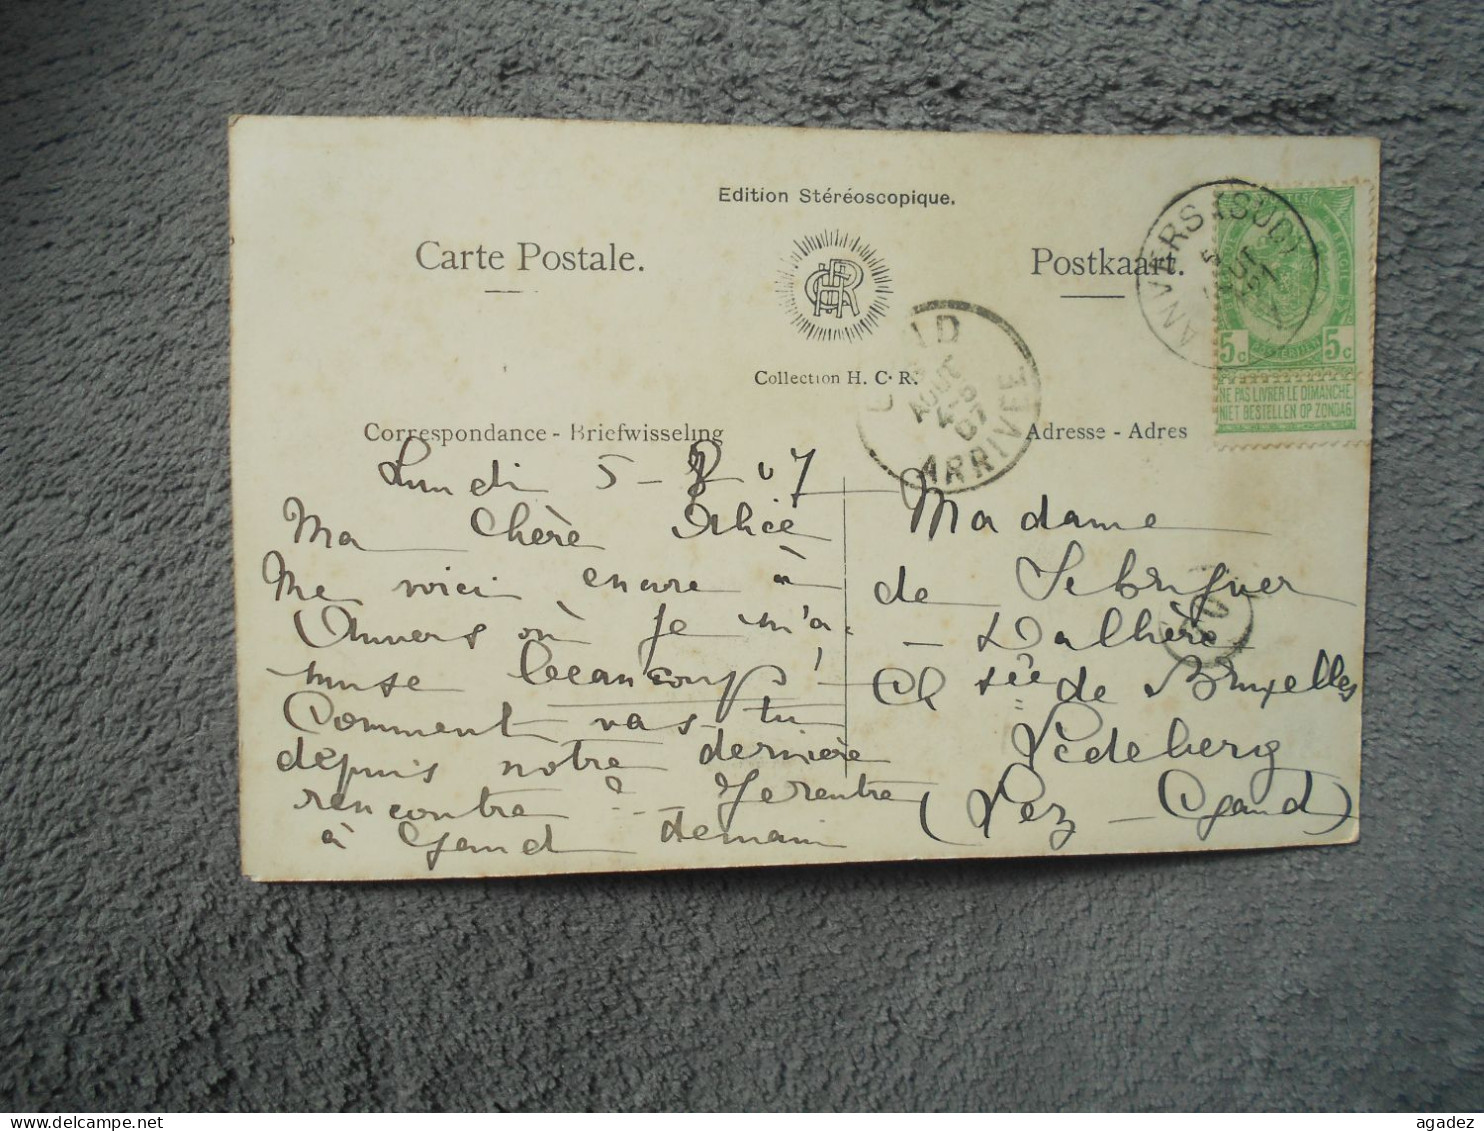 Edition Stéréoscopique.
Carte Postale.
Postkaart.
HCR
Collection H. C. R.
Correspondance - Briefwisseling
Adresse - Adres
ANVERS (SUD)
5
5c 5c
NE PAS LIVRER LE DIMANCHE
NIET BESTELLEN OP ZONDAG
AOUT
07
ARRIVÉE
Lundi 5-8-07
Ma Chère Alice
Me voici encore à
Anvers où je m'a-
muse beaucoup!
Comment vas-tu
depuis notre dernière
rencontre? - Je rentre
à Gand demain
Madame
de
Ch sée de Bruxelles
Ledeberg
(Lez - Gand)
agadez